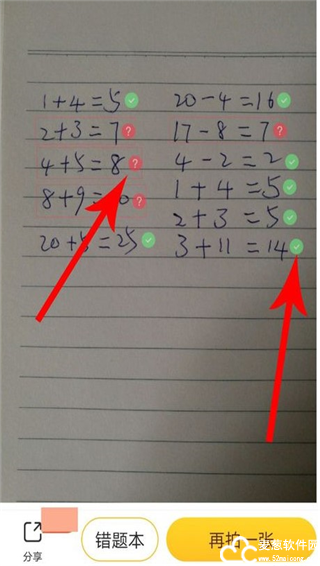 1+4=5
2+3=7
4+5=8
8+9=
20+5=25
20-4=16
17-8=7
4-2=2
1+4=5
2+3=5
3+11=14
分享
错题本
再拍一张
麦葱软件园
www.52maicong.com